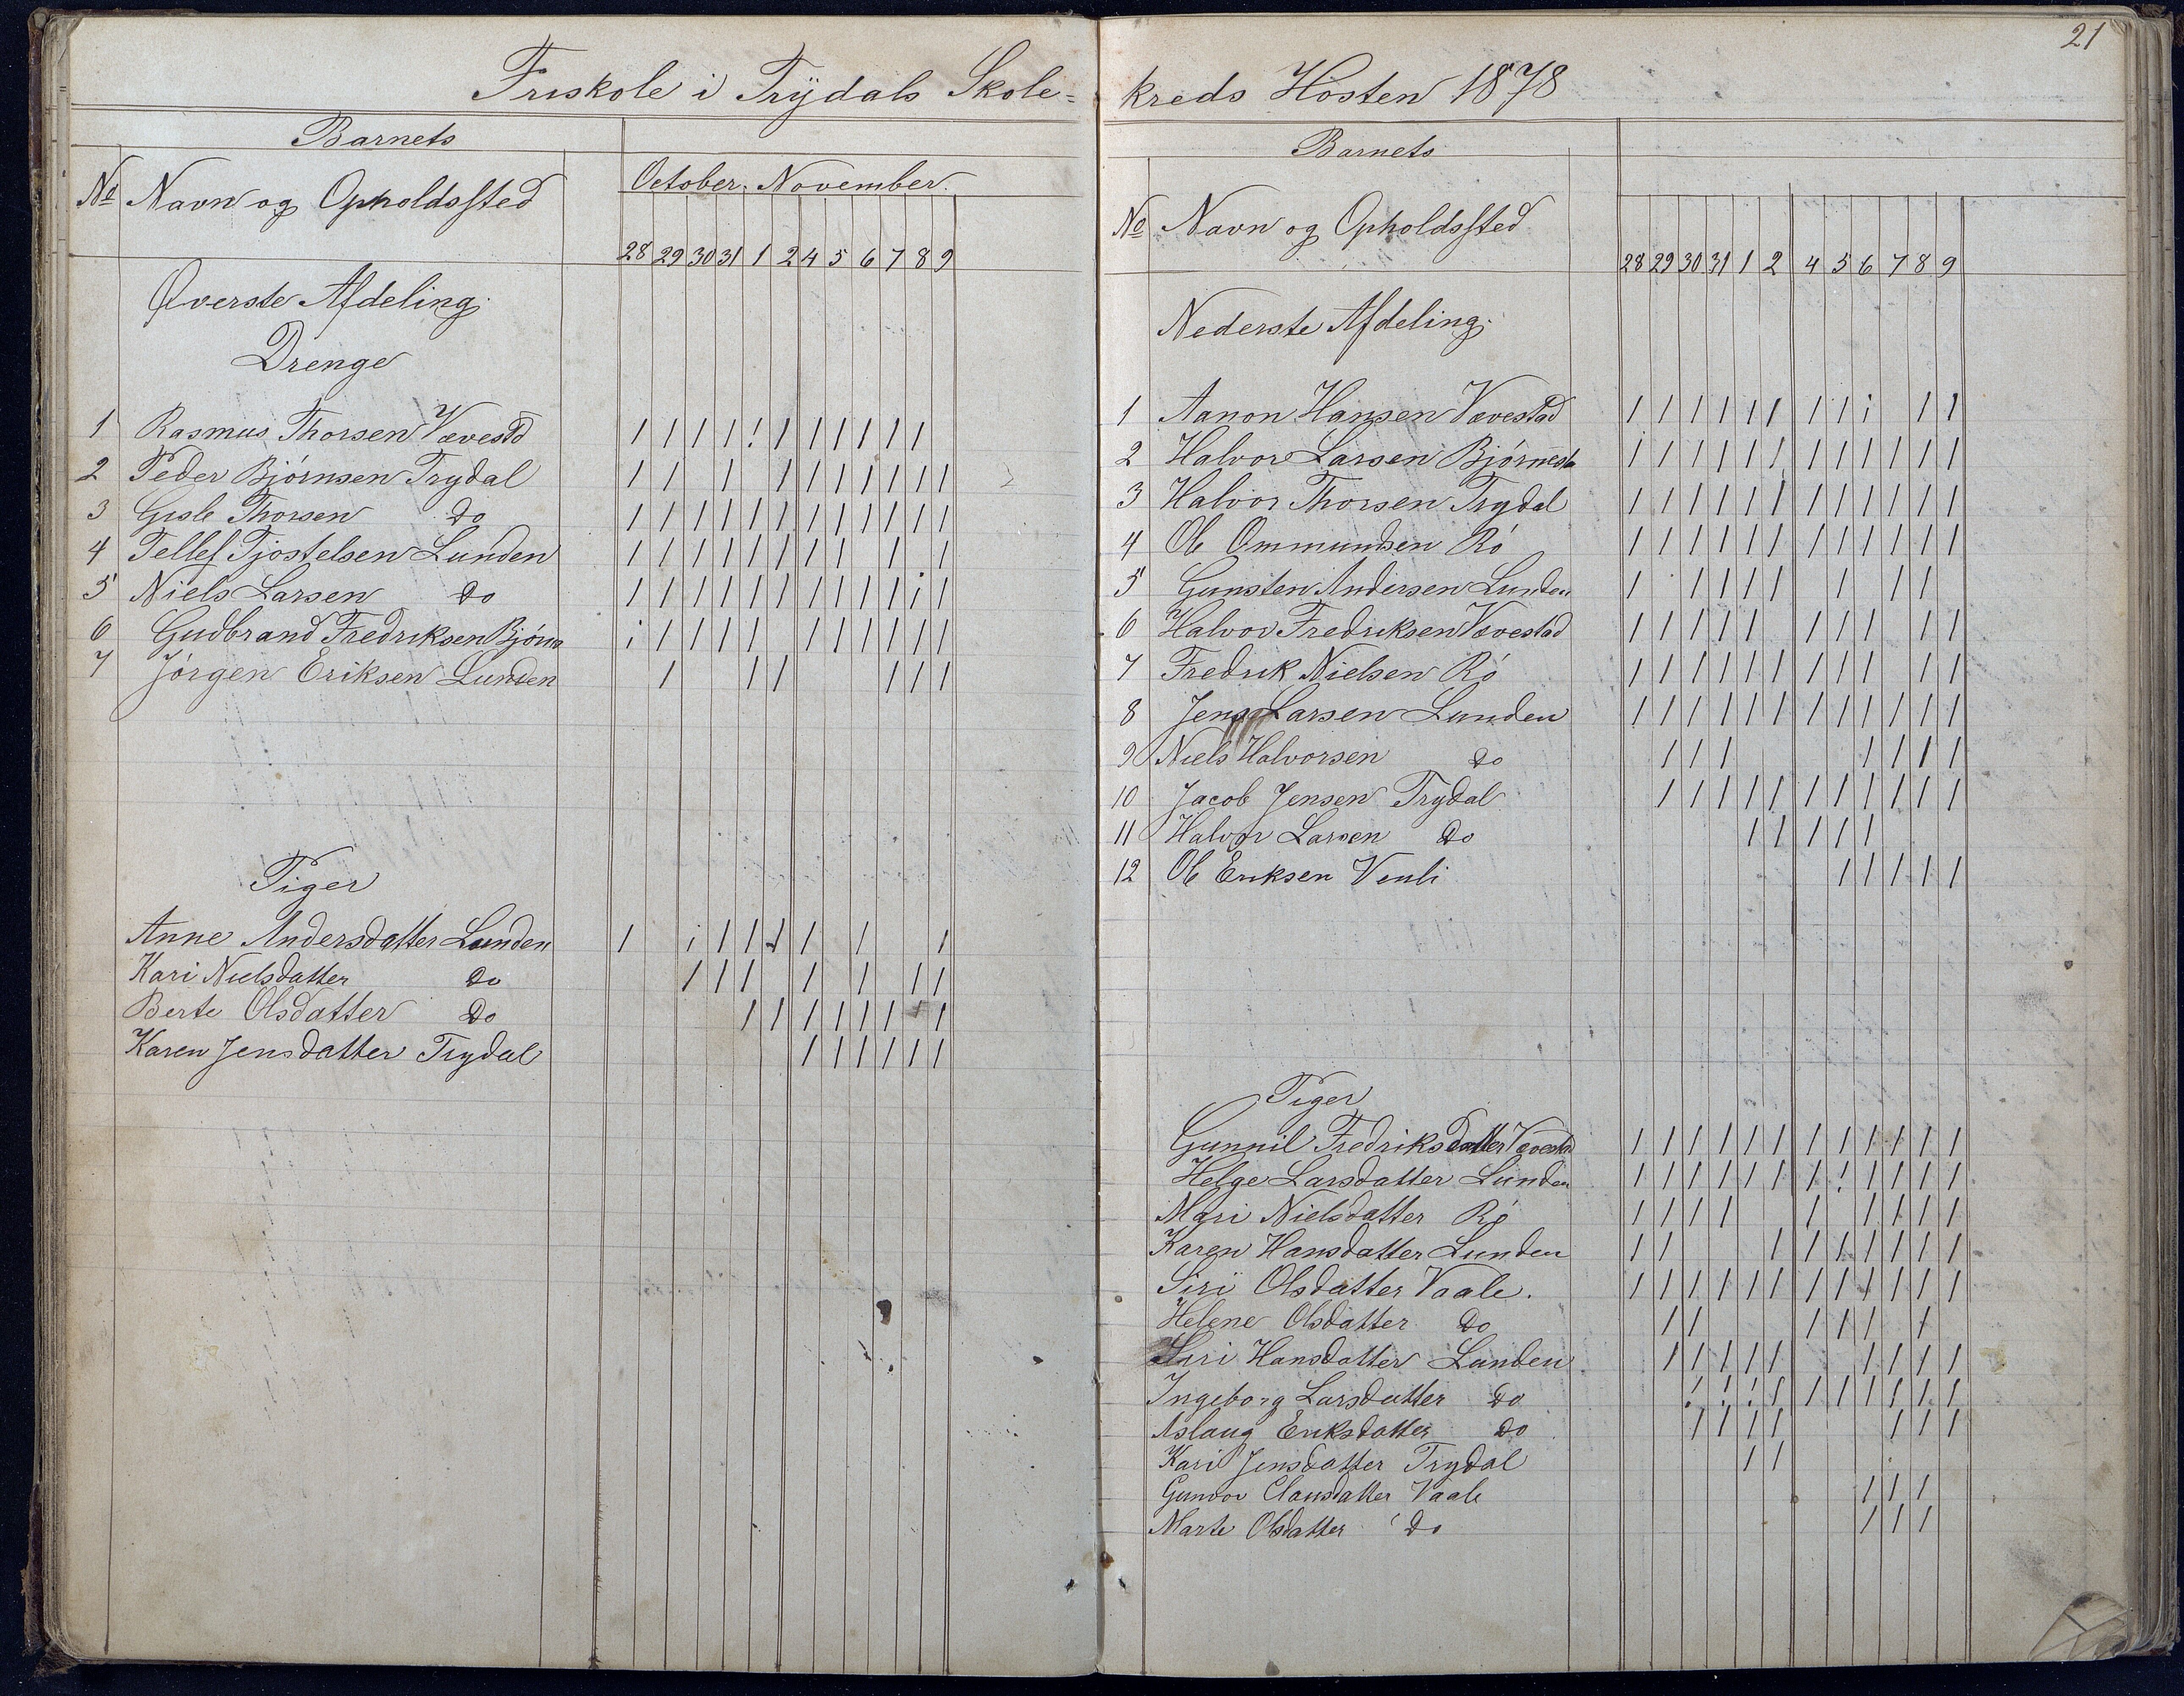 Friskole i Trÿdals Skole=
Barnets
October. November.
No Navn og Opholdssted
28 29 30 31 1 2 4 5 6 7 8 9
Øverste Afdeling.
Drenge
1 Rasmus Thorsen Vævestd 1 1 1 1 1 1 1 1 1 1 1
2 Peder Bjørnsen Trydal 1 1 1 1 1 1 1 1 1 1
3 Gisle Thorsen do 1 1 1 1 1 1 1 1 1 1 1 1
4 Tellef Tjostelsen Lunden 1 1 1 1 1 1 1 1 1 1
5 Niels Larsen do 1 1 1 1 1 1 1 1 1 1 1 1
6 Gudbrand Fredriksen Bjørn 1 1 1 1 1 1 1 1 1 1 1
7 Jørgen Eriksen Lunden 1 1 1 1 1 1
Piger
Anne Andersdatter Lunden 1 1 1 1 1 1 1 1
Kari Nielsdatter do 1 1 1 1 1 1 1
Berte Olsdatter do 1 1 1 1 1 1 1 1
Karen Jensdatter Trydal 1 1 1 1 1 1
21
kreds Høsten 1878
Barnets
No Navn og Opholdssted
28 29 30 31 1 2 4 5 6 7 8 9
Nederste Afdeling.
1 Aanon Hansen Vævestad 1 1 1 1 1 1 1 1 1 1 1
2 Halvor Larsen Bjørnesta 1 1 1 1 1 1 1 1 1 1 1 1
3 Halvor Thorsen Trydal 1 1 1 1 1 1 1 1 1 1 1 1
4 Ole Ommundsen Rø 1 1 1 1 1 1 1 1 1 1 1 1
5 Gunsten Andersen Lunden 1 1 1 1 1 1 1 1
6 Halvor Fredriksen Vævestad 1 1 1 1 1 1 1 1 1 1
7 Fredrik Nielsen Rø 1 1 1 1 1 1 1 1 1 1 1
8 Jens Larsen Lunden 1 1 1 1 1 1 1 1 1 1 1 1
9 Niels Halvorsen do 1 1 1 1 1 1 1
10 Jacob Jensen Trydal 1 1 1 1 1 1 1 1 1 1 1
11 Halvor Larsen do 1 1 1 1 1
12 Ole Eriksen Venli 1 1 1 1 1
Piger
Gunnil Fredriksdatter Vævestad 1 1 1 1 1 1 1 1 1 1 1 1
Helge Larsdatter Lunden 1 1 1 1 1 1 1 1 1 1 1 1
Mari Nielsdatter Rø 1 1 1 1 1 1 1 1 1
Karen Hansdatter Lunden 1 1 1 1 1 1 1 1 1
Siri Olsdatter Vaale. 1 1 1 1 1 1 1 1 1 1 1 1
Helene Olsdatter do 1 1 1 1 1 1
Siri Hansdatter Lunden 1 1 1 1 1 1 1 1 1
Ingeborg Larsdatter do 1 1 1 1 1 1 1 1 1 1
Aslaug Eriksdatter do 1 1 1 1 1 1 1
Kari Jensdatter Trydal 1 1
Gunvor Clausdatter Vaale 1 1 1
Marte Olsdatter do 1 1 1